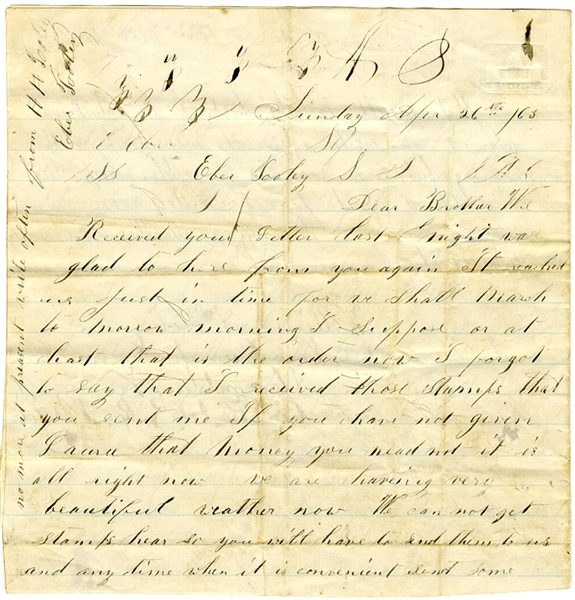 Sunday Apr 26th /63
Eber
Eber Sooley S
Dear Brother We
Received your Letter last night
glad to here from you again It reached
us just in time for we shall March
to morrow morning I suppose or at
least that is the order now I forgot
to say that I received those stamps that
you sent me If you have not given
Laura that money you need not it is
all right now we are having very
beautiful weather now We can not get
stamps hear so you will have to send them to us
and any time when it is convenient send some
no more at present write often
from
Eber Sooley